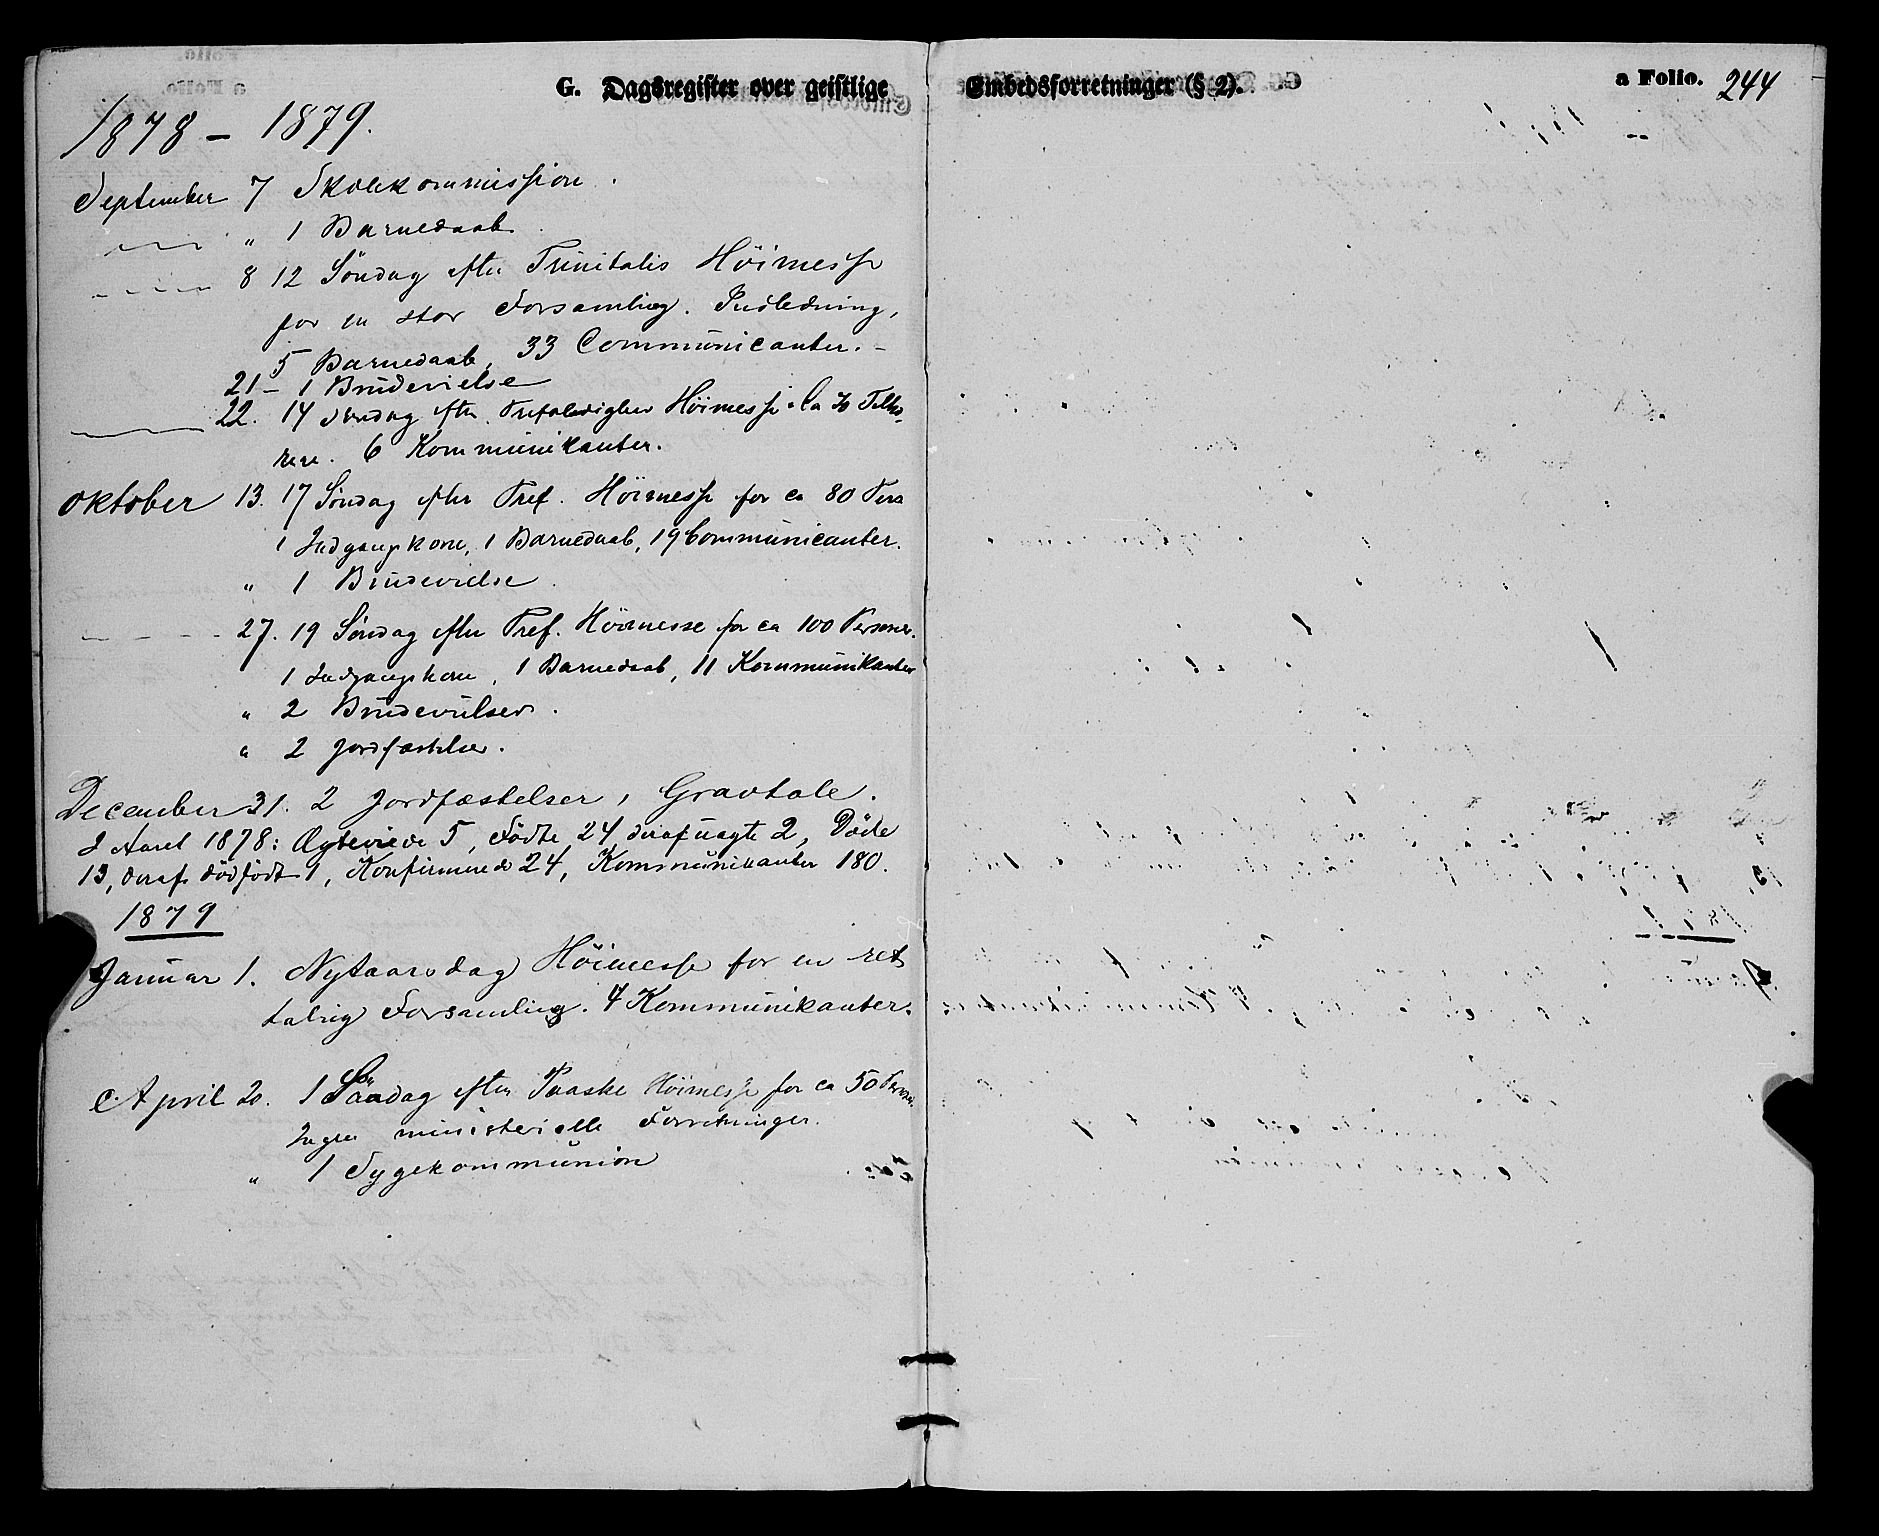 G. Dagsregister over geistlige Embedsforretninger (§ 2). a Folio. 244
1878 – 1879.
September 7 Skolekommission.
" 1 Barnedaab.
8 12 Söndag efter Trinitatis Höimesse
for en stor Forsamling. Indledning,
5 Barnedaab, 33 Communicanter. –
21 – 1 Brudevielse
22. 14 Søndag efter Trefoldighed Höimesse Ca 70 Tilhø-
rere. 6 Kommunikanter.
Oktober 13. 17 Söndag efter Tref. Höimesse for ca 80 Pers
1 Indgangskone, 1 Barnedaab, 19 Communicanter.
" 1 Brudevielse
27. 19 Söndag efter Tref. Höimesse for ca 100 Personer.
1 Indgangskone, 1 Barnedaab, 11 Kommunikanter
" 2 Brudevielser.
" 2 Jordfæstelser.
December 31. 2 Jordfæstelser, Gravtale.
I Aaret 1878: Ægteviede 5, Födte 24 deraf uagte 2, Döde
13, deraf dödfödt 1, Konfirmerede 24, Kommunikanter 180.
1879
Januar 1. Nytaarsdag Höimesse for en ret
talrig Forsamling. 4 Kommunikanter.
April 20. 1 Söndag efter Paaske Höimesse for ca 50 Personer.
Ingen ministerielle Forretninger.
" 1 Sygekommunion